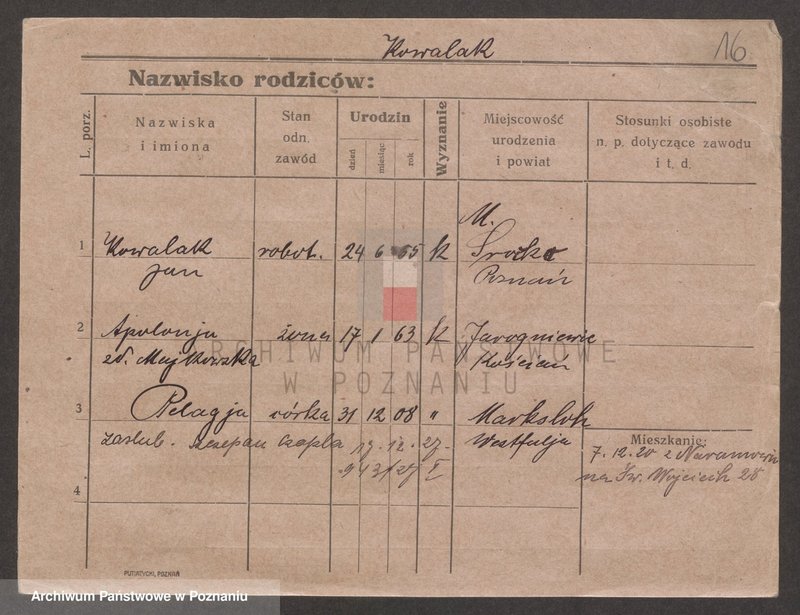 Kowalak
16
Nazwisko rodziców:
L. porz.
Nazwiska
i imiona
Stan
odn.
zawód
Urodzin
dzień
miesiąc
rok
Wyznanie
Miejscowość
urodzenia
i powiat
Stosunki osobiste
n. p. dotyczące zawodu
i t. d.
1
Kowalak robot. 24 6 65 k M. Srocko
Jan Poznań
2
Apolonja żona 17 1 63 k Jarogniewice
zd. Majkowska Kościan
ARCHIWUM PAŃSTWOWE
W POZNANIU
3
Pelagja córka 31 12 08 " Marksloh
zaślub. Szczepan Czapla 17. 12. 27. Westfalja
Mieszkanie:
7.12.20 z
na Św. Wojciech 28
4
PUTIATYCKI, POZNAŃ
Archiwum Państwowe w Poznaniu